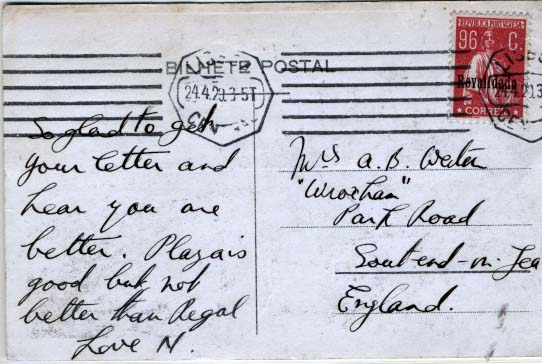 REPUBLICA PORTUGUESA
96 C.
Revalidado
CORREIO
BILHETE POSTAL
LISBOA
24.4.29.3-5T
24.4.29.3
So glad to get
your letter and
hear you are
better. Plaza is
good but not
better than Regal
Love N.
Mrs A. B.
"Wroxham"
Park Road
Southend-on-Sea
England.